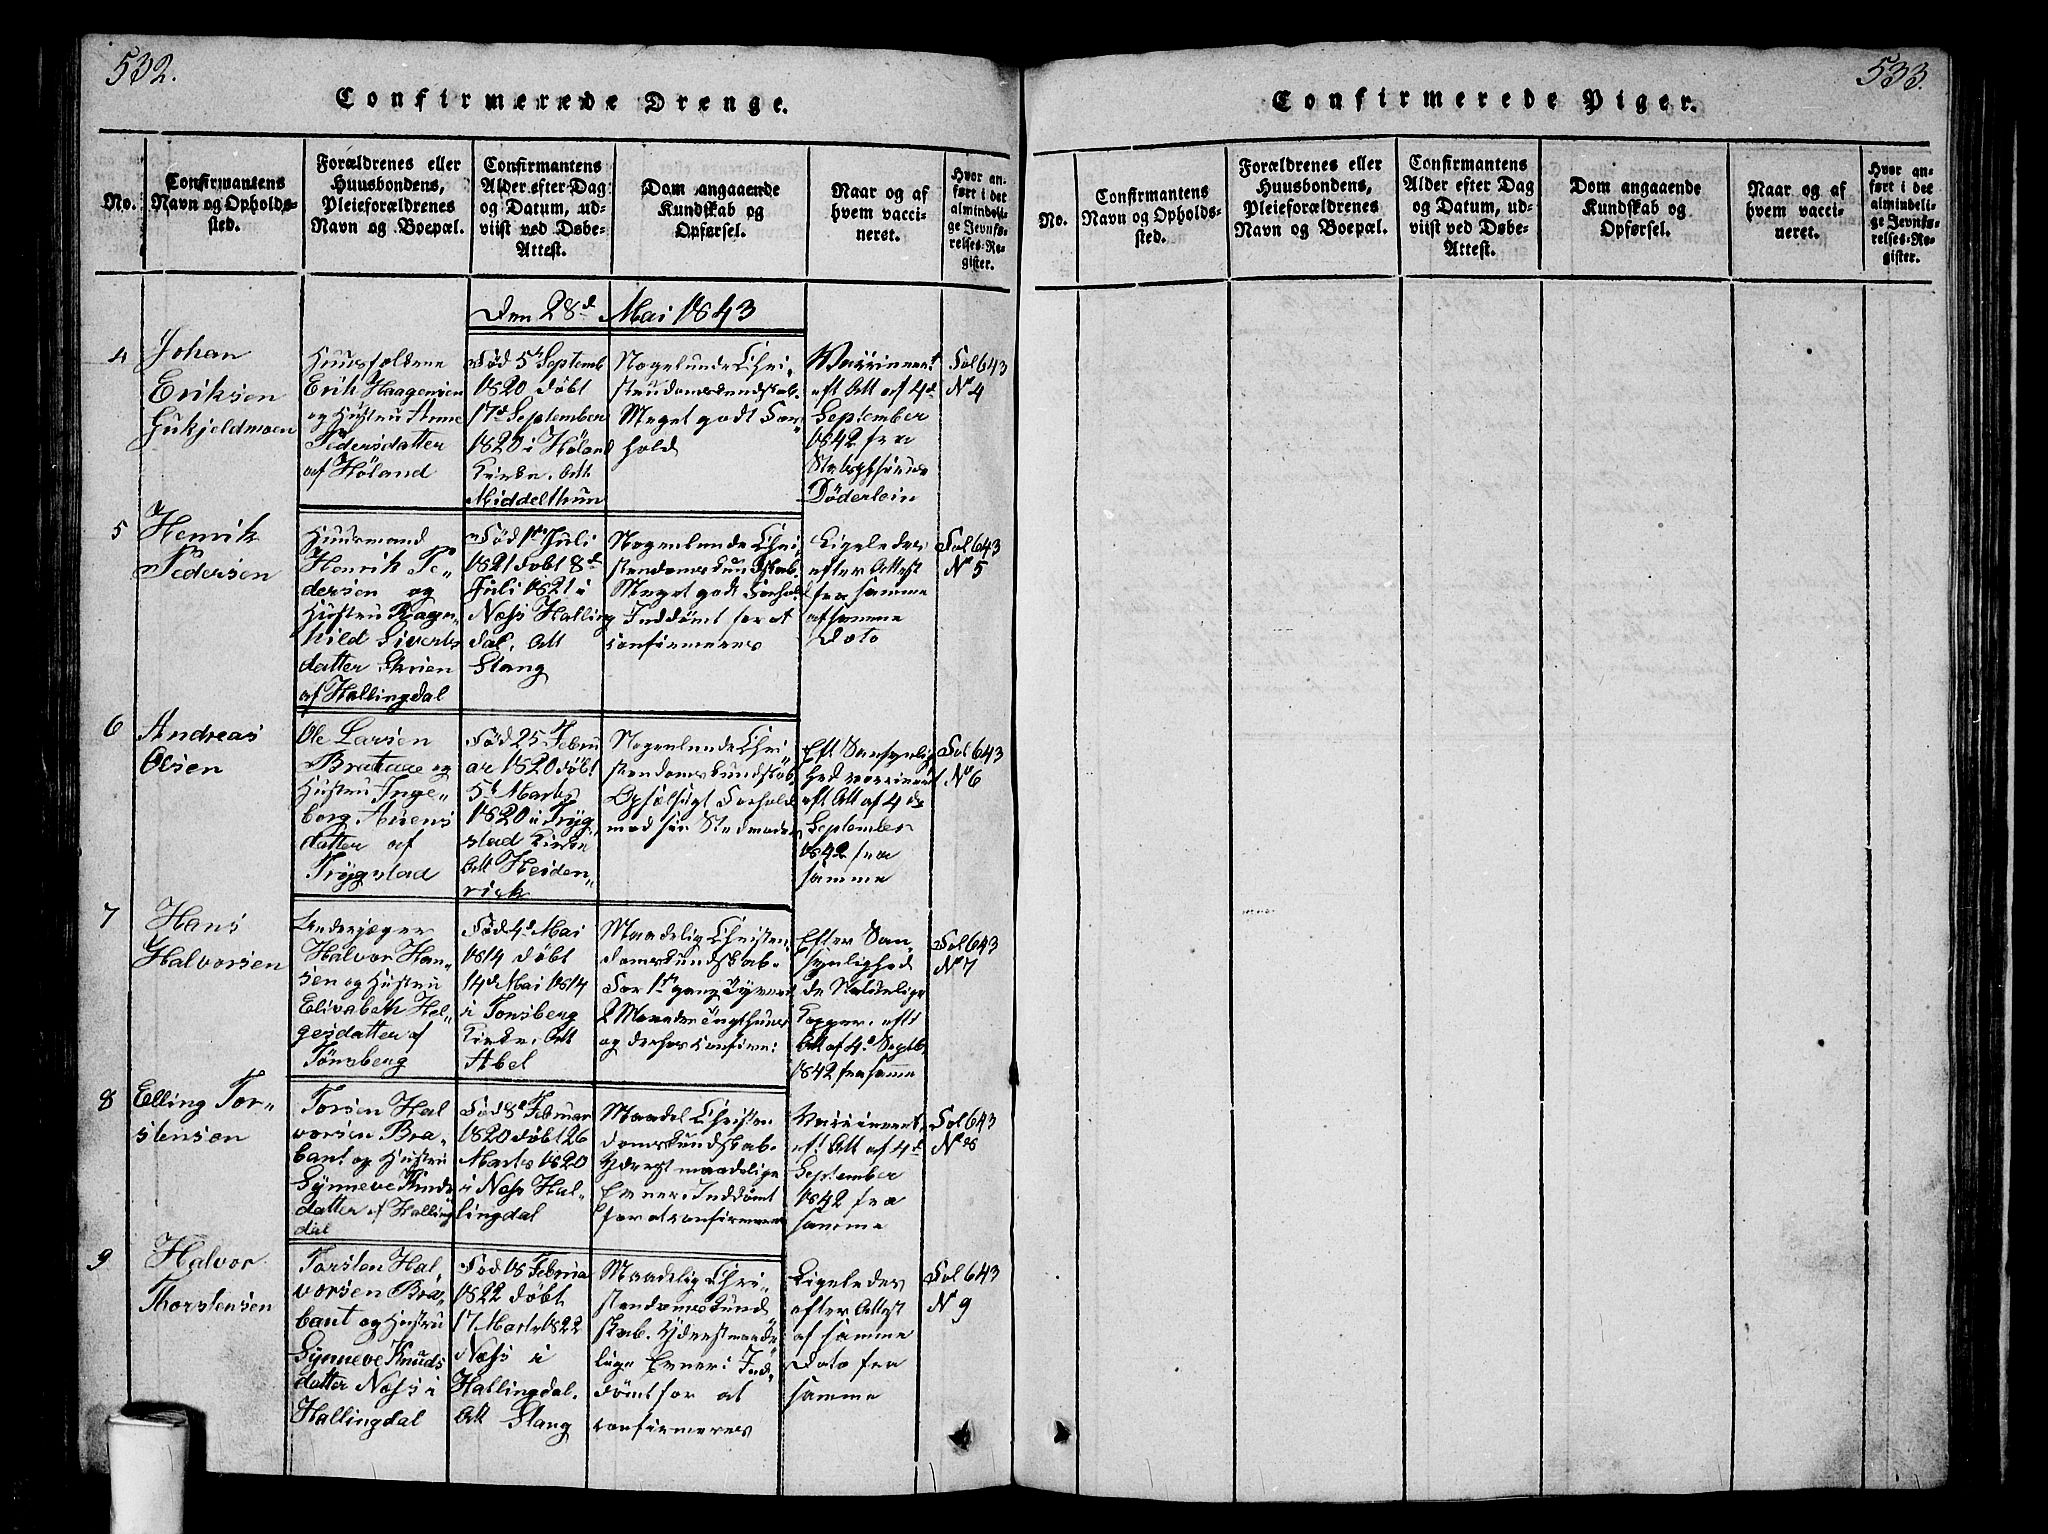 532.
Confirmerede Drenge.
No.
Confirmantens
Navn og Opholds-
sted.
Forældrenes eller
Huusbondens,
Pleieforældrenes
Navn og Boepæl.
Confirmantens
Alder efter Dag
og Datum, ud-
viist ved Døbe-
Attest.
Dom angaaende
Kundskab og
Opførsel.
Naar og af
hvem vacci-
neret.
Hvor an-
ført i det
almindeli-
ge Jevnfø-
relses-Re-
gister.
Den 28d Mai 1843
4
Johan
Eriksen
Gukjeldmoen
Huusfoldene
Erik Haagensen
og Hustru Anne
Pedersdatter
af Höland
Född 5t Septemb
1820 döbt
17d September
1820 i Höland
Kirke. Att
Middelthun
Nogenlunde Chri-
stendomskundskab.
Meget godt For-
hold
Vaccineert
eft Att af 4d
September
1842 fra
Döderlein
Fol 643
No 4
5
Henrik
Pedersen
Huusmand
Henrik Pe-
dersen og
Hustru Ragn-
hild Siverts
datter Skrien
af Hallingdal
Född 1ste Juli
1821 döbt 8d
Juli 1821 i
Næss Halling
dal. Att
Stang
Nogenlunde Chri-
stendomskundskab.
Meget godt Forhol.
Inddömt for at
confirmeres
Ligeledes
efter Attest
fra samme
af samme
Dato
Fol 643
No 5
6
Andreas
Olsen
Ole Larsen
Brataae og
Hustru Inge-
borg Anens
datter af
Trygstad
Född 25 Febru
ar 1820 döbt
5t Marts
1820 i Tryg-
stad Kirke
Att Heiden-
rick
Nogenlunde Chri
stendomskundskab.
Opsælsigt Forhold
mod sin Stedmoder
Eft Sansynlig
hed vaccineret
eft Att af 4de
September
1842 fra
samme
Fol 643
No 6
7
Hans
Halvorsen
Underjæger
Halvor Han-
sen og Hustru
Elisabeth Hel-
gesdatter af
Tönsberg
Född 4d Mai
1814 döbt
14d Mai 1814
i Tonsberg
Kirke. Att
Abel
Maadelig Christen-
domskundskab.
For 1st gang Tyveri
2 Maaneder Tugthuus
og derhos confirm:
Efter San-
synlighed
de Naturlige
Kopper. eft
Att af 4d Septb
1842 fra samme
Fol 643
No 7
8
Elling Tor-
stensen
Torsen Hal
vorsen Bra-
bant og Hustru
Synneve Knuds
datter af Halling
dal
Född 8d Februar
1820 döbt 26
Marts 1820
i Næss Hal-
lingdal
Maadel Christen
domskundskab.
Yderst maadelige
Evner: Inddömt
for at confirmeres
Vaccineert
eft Att af 4d
September
1842 fra
samme
Fol 643
No 8
9
Halvor
Thorstensen
Torsten Hal,
vorsen Bra-
bant og Hustru
Synneve Knuds
datter Næss i
Hallingdal
Född 18 Februa
1822 döbt
17 Marts 1822
Næss i
Hallingdal.
Att Stang
Maadelig Chri-
stendomskund
skab. Yderst maade
lige Evner: Ind,
dömt for at
confirmeres
Ligeledes
efter Attest
af samme
Dato fra
samme
Fol 643
No 9
533.
Confirmerede Piger.
No.
Confirmantens
Navn og Opholds-
sted.
Forældrenes eller
Huusbondens,
Pleieforældrenes
Navn og Boepæl.
Confirmantens
Alder efter Dag
og Datum, ud-
viist ved Døbe-
Attest.
Dom angaaende
Kundskab og
Opførsel.
Naar og af
hvem vacci-
neret.
Hvor an-
ført i det
almindeli-
ge Jevnfø-
relses-Re-
gister.